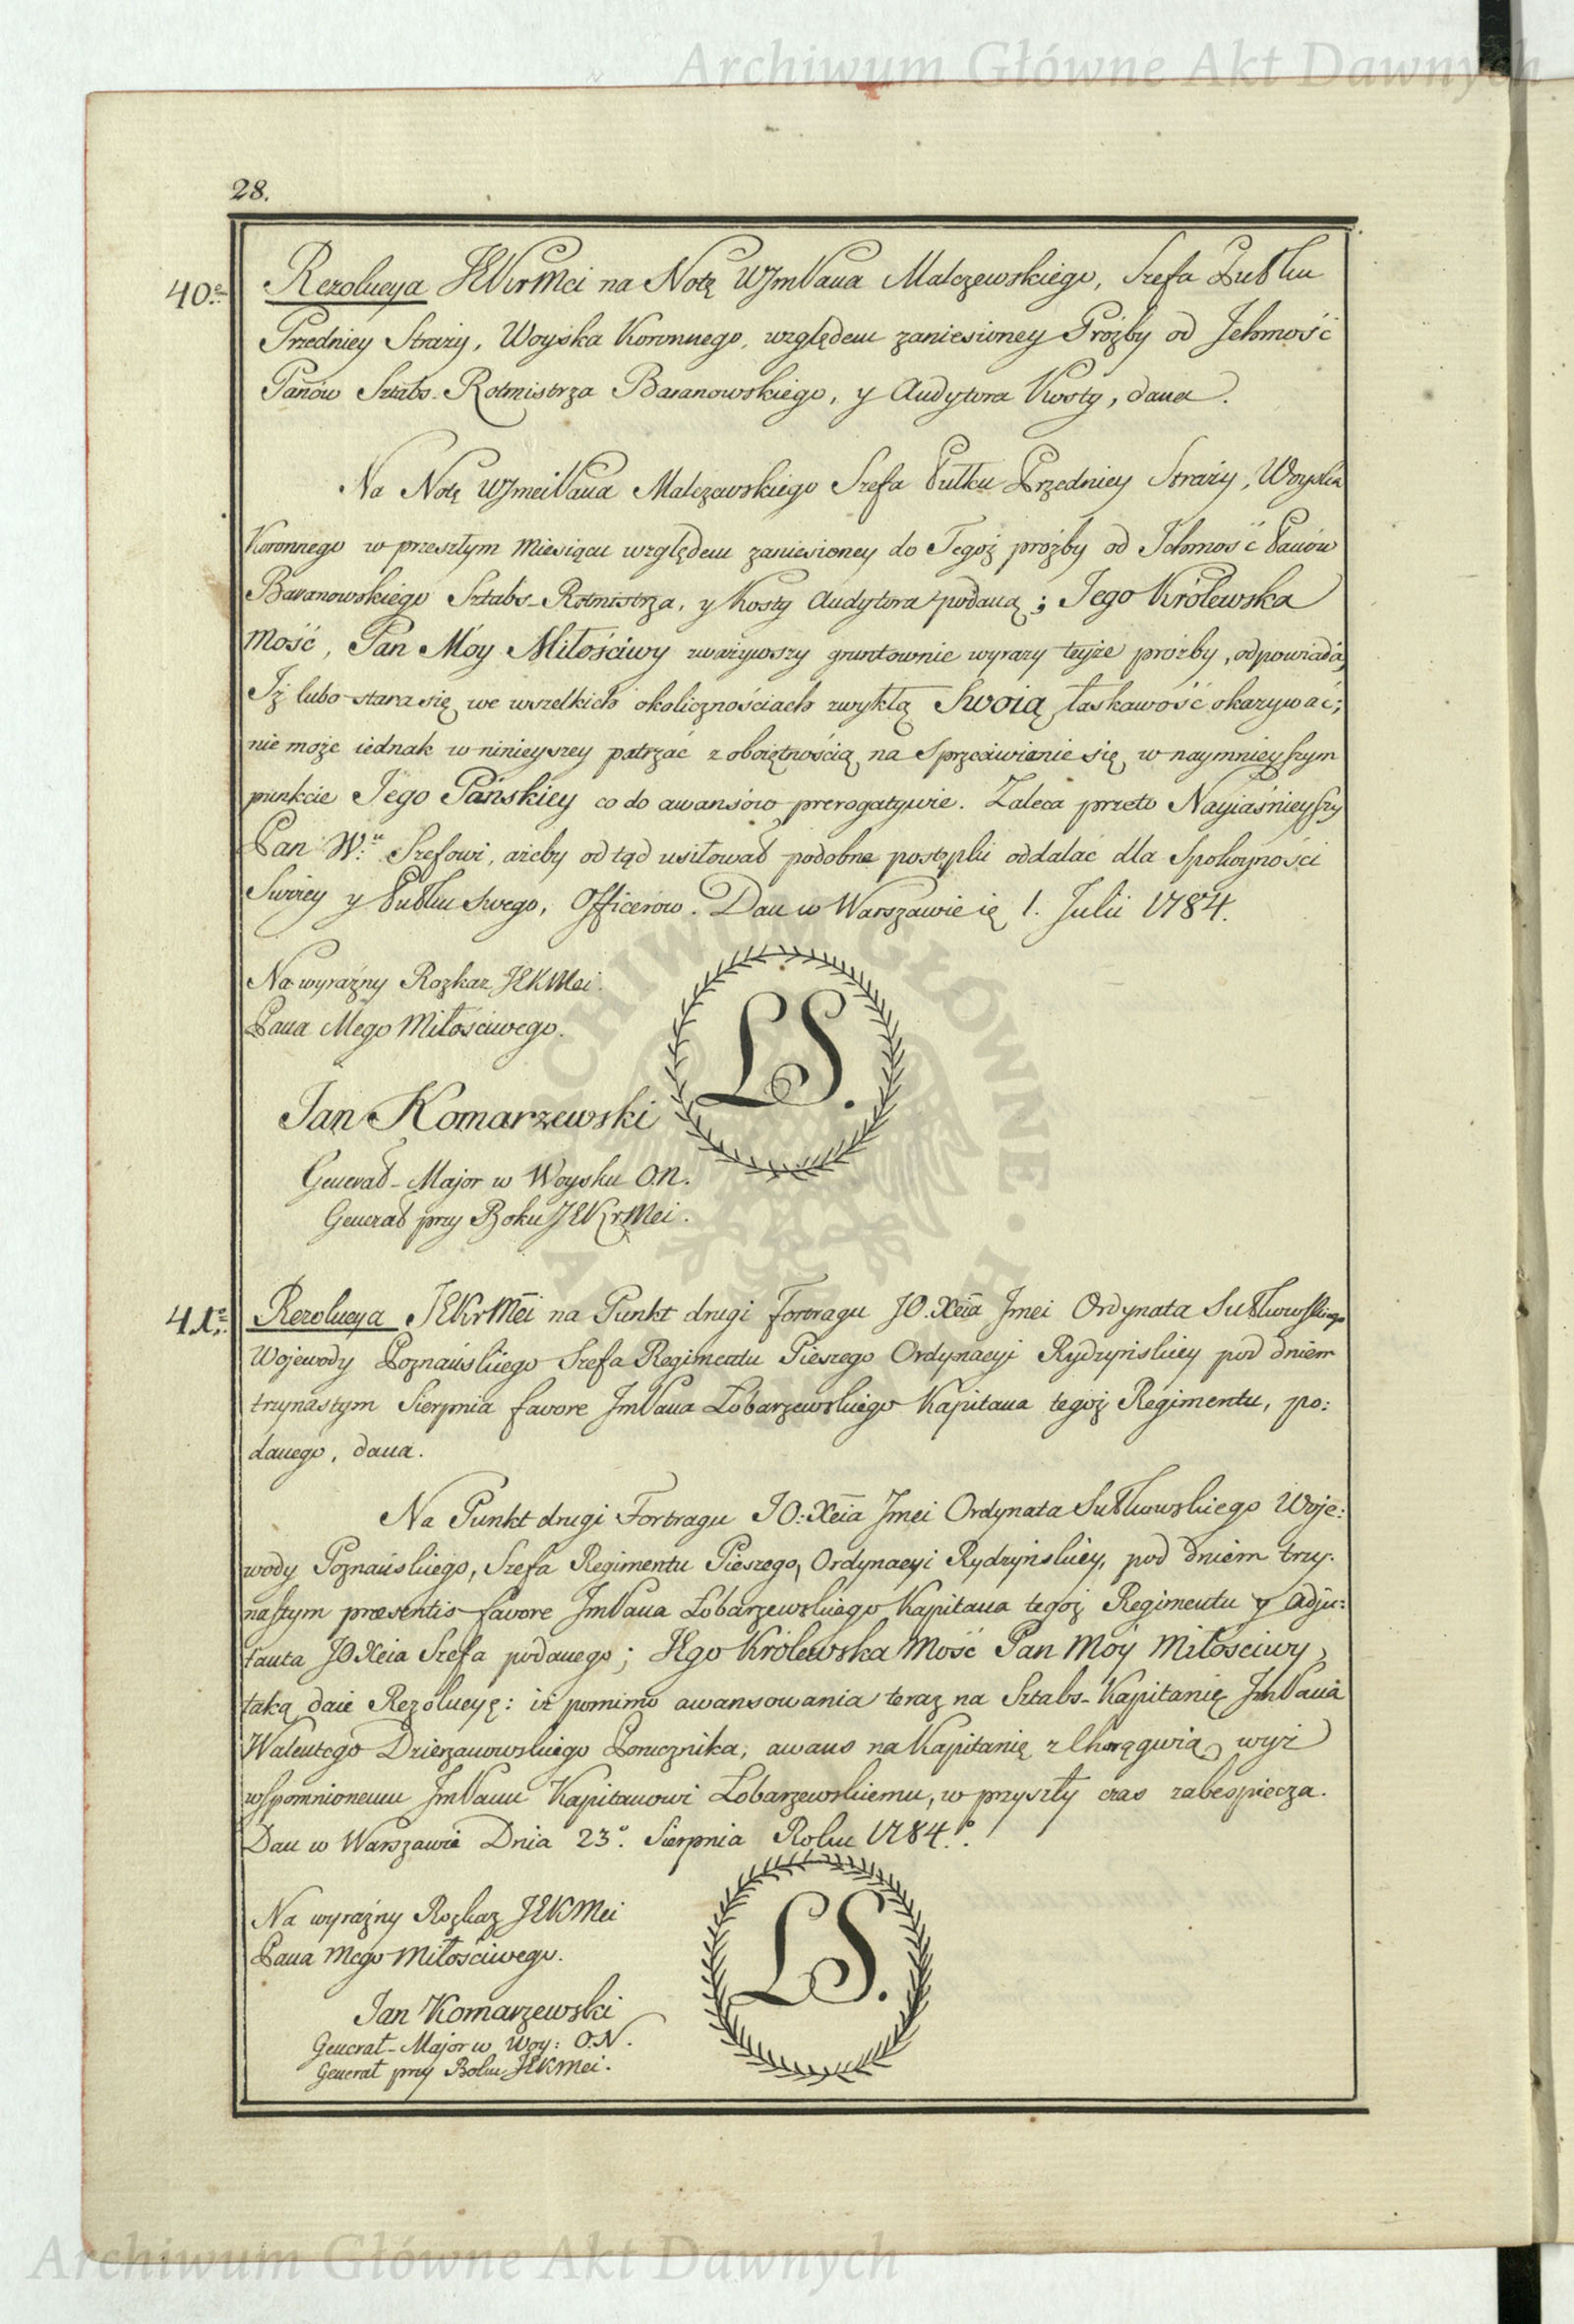 Archiwum Główne Akt Dawnych
28.
40.
Rezolucya JKKrMci na Notę WJmPana Malczewskiego, Szefa Pułku
Przedniey Straży, Woyska Koronnego, względem zaniesioney Prożby od Jchmość
Panów Sztabs-Rotmistrza Baranowskiego, y Audytora Kosty, dana.
Na Notę WJmciPana Malczewskiego Szefa Pułku Przedniey Straży, Woyska
Koronnego w przeszłym Miesiącu względem zaniesioney do Tegoż prożby od Jchmość Panów
Baranowskiego Sztabs-Rotmistrza, y Kosty Audytora podaną; Jego Królewska
Mość, Pan Móy Miłościwy zważywszy gruntownie wyrazy teyże prożby, odpowiada,
Iż lubo stara się we wszelkich okolicznościach zwykłą Swoią łaskawość okazywać;
nie może iednak w ninieyszey patrzać z oboiętnością na Sprzeciwienie się w naymnieyszym
punkcie Jego Pańskiey co do awansów prerogatywie. Zaleca przeto Nayiaśnieyszy
Pan W.u Szefowi, ażeby odtąd usiłował podobne postępki oddalać dla Spokoyności
Swoiey y Pułku Swego, Officerów. Dan w Warszawie ię 1. Julii 1784.
Na wyraźny Rozkaz JKKMci
Pana Mego Miłościwego.
LS.
Jan Komarzewski
Generał-Major w Woysku O.N.
Generał przy Boku JKKrMci.
41.
Rezolucya JEKrMci na Punkt drugi Fortragu JO. Xcia Jmci Ordynata Sułkowskiego
Wojewody Poznańskiego Szefa Regimentu Pieszego Ordynacyi Rydzyńskiey pod dniem
trzynastym Sierpnia favore JmPana Łobarzewskiego Kapitana tegoż Regimentu, po:
danego, dana.
Na Punkt drugi Fortragu JO: Xcia Jmci Ordynata Sułkowskiego Woje:
wody Poznańskiego, Szefa Regimentu Pieszego, Ordynacyi Rydzyńskiey, pod dniem trzy:
nastym præsentis favore JmPana Łobarzewskiego Kapitana tegoż Regimentu y Adju:
tanta JOXcia Szefa podanego; JEgo Królewska Mość Pan Móy Miłościwy,
taką daie Rezolucyę: iż pomimo awansowania teraz na Sztabs-Kapitanię JmPana
Walentego Dzierzanowskiego Porucznika, awans na Kapitanię z Chorągwią wyż
wspomnionemu JmPanu Kapitanowi Łobarzewskiemu, w przyszły czas zabespiecza.
Dan w Warszawie Dnia 23°. Sierpnia Roku 1784.°
Na wyraźny Rozkaz JEKMci
Pana Mego Miłościwego.
LS.
Jan Komarzewski
Generał-Major w Woy: O.N.
Generał przy Boku JEKMci.
Archiwum Główne Akt Dawnych